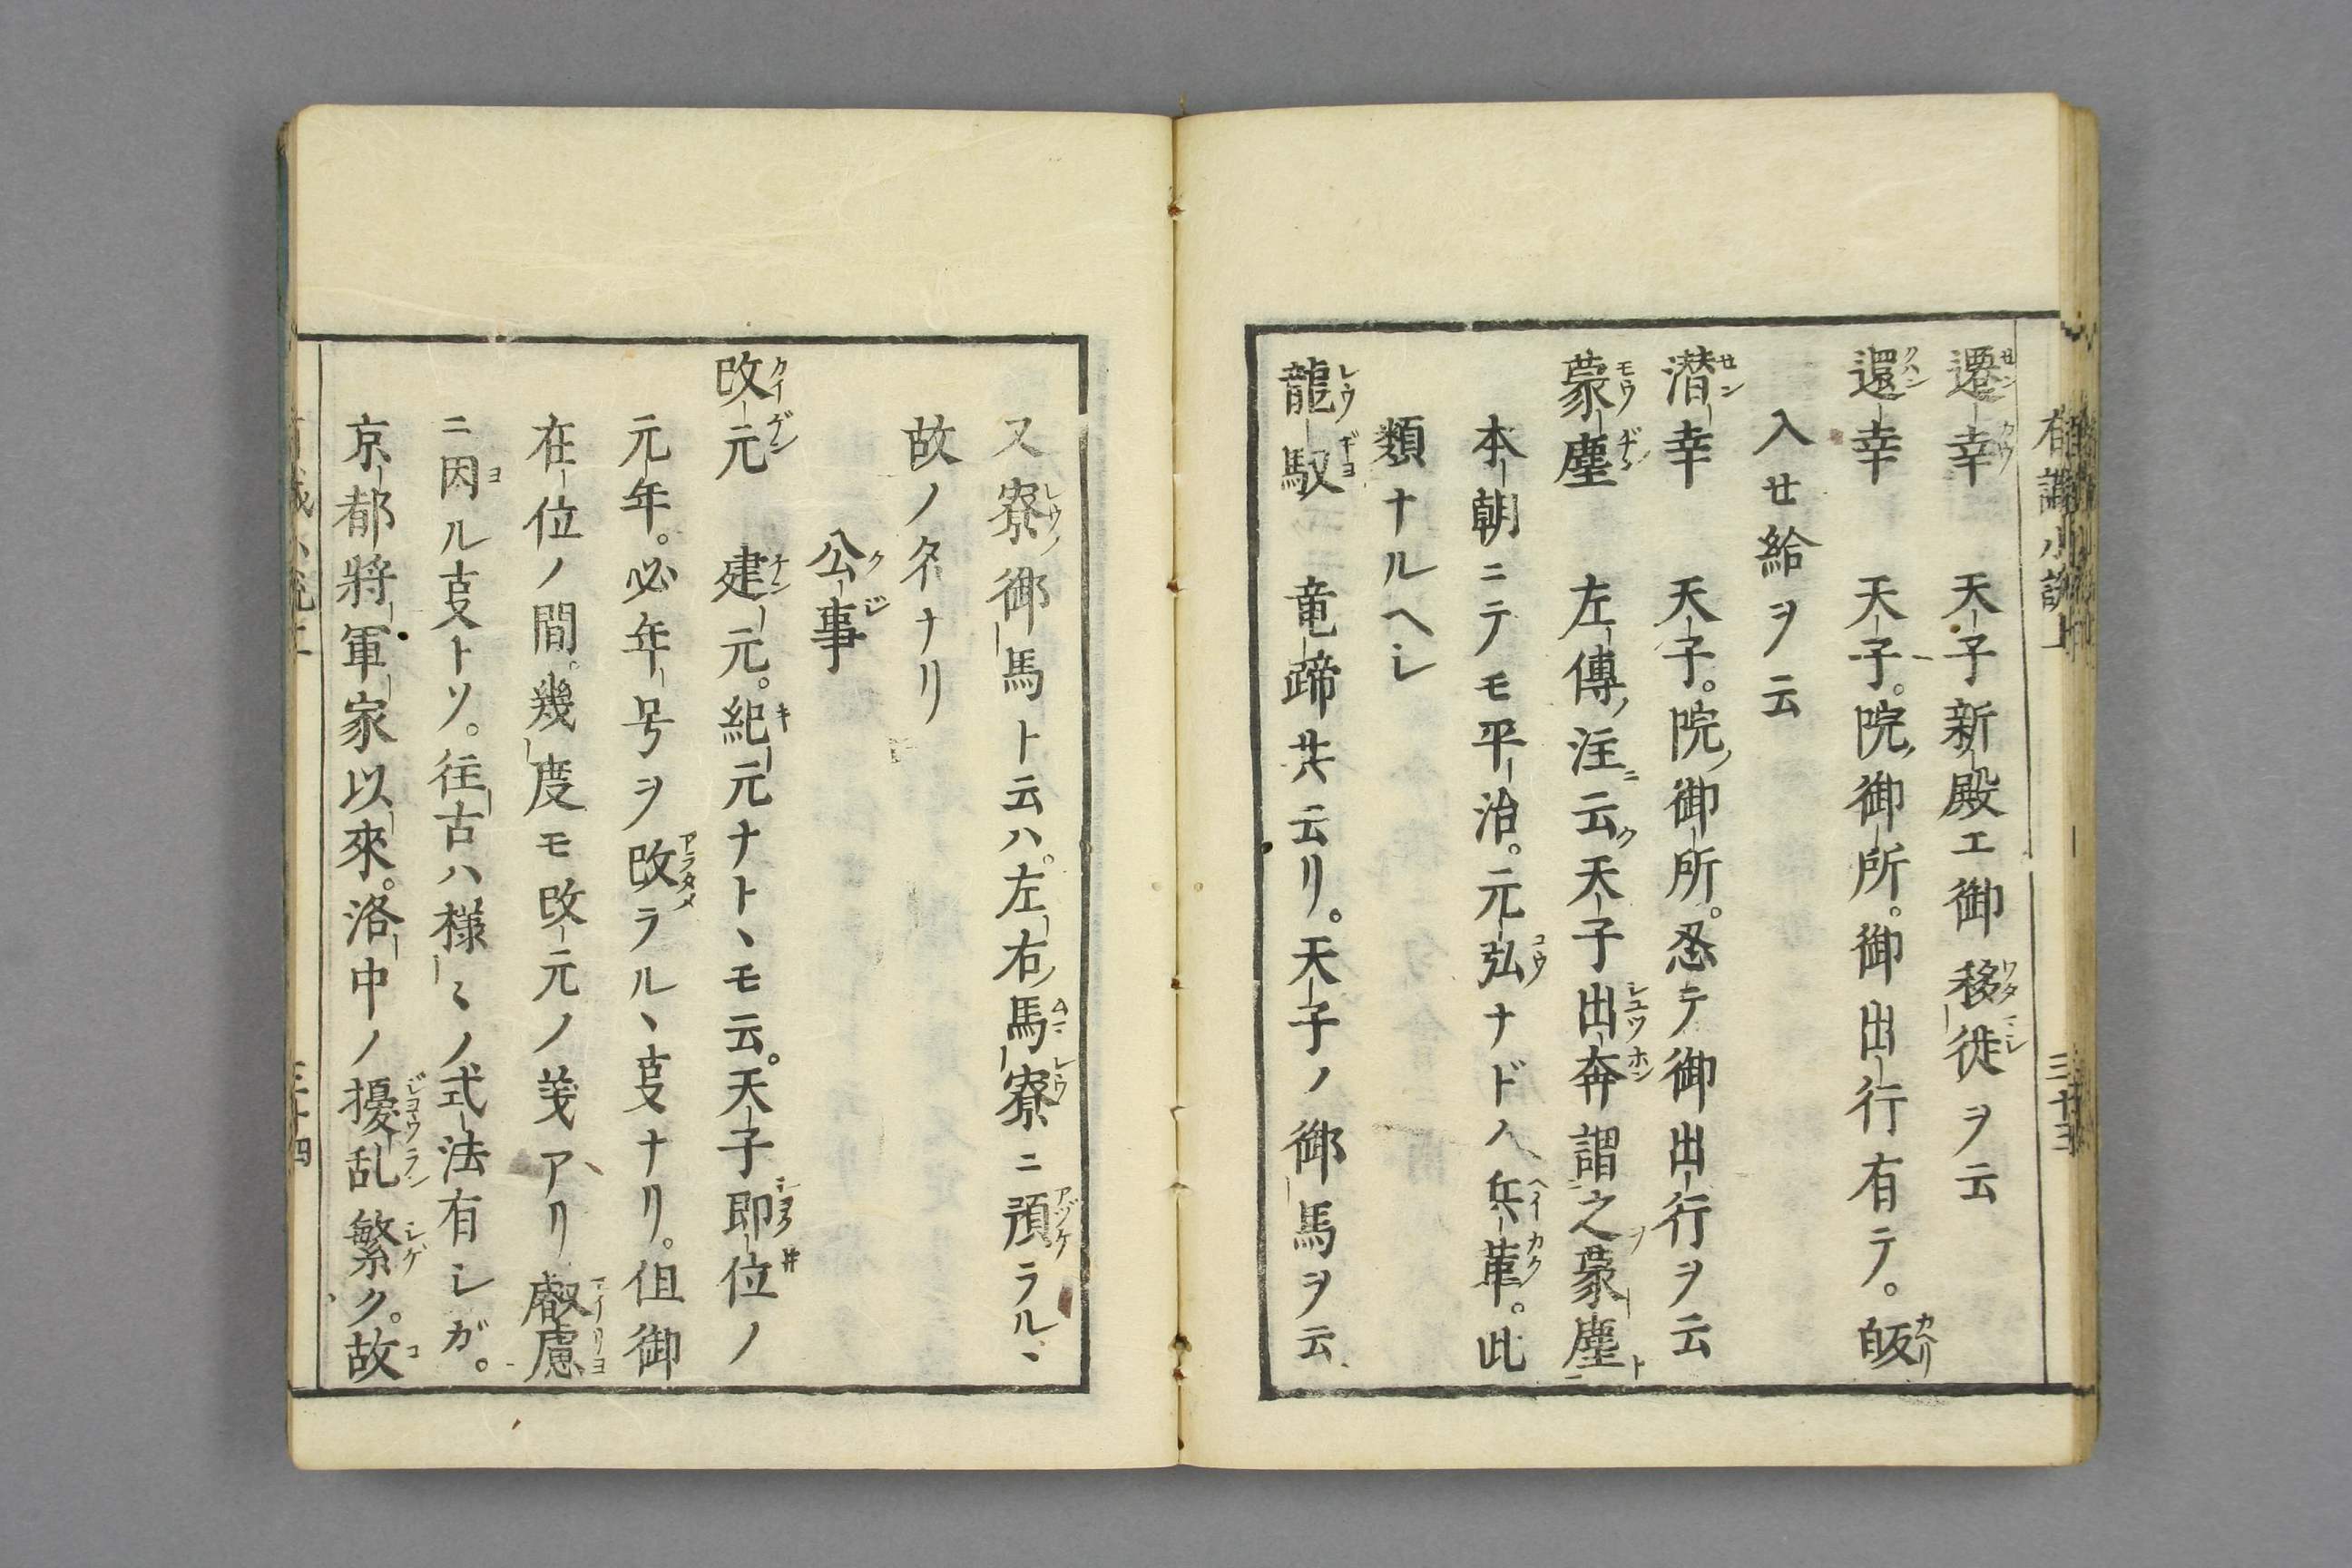 遷幸　天子新殿エ御移徙ヲ云
還幸　天子。院ノ御所。御出行有テ。皈
入セ給ヲ云
潜幸　天子。院ノ御所。忍テ御出行ヲ云
蒙塵　左傳ノ注ニ云ク天子出奔謂之蒙塵ト
本朝ニテモ平治。元弘ナドハ兵革。此
類ナルヘシ
龍馭　竜蹄共云リ。天子ノ御馬ヲ云
又寮ノ御馬ト云ハ。左右ノ馬寮ニ預ラルヽ
故ノ名ナリ
公事
改元　建元。紀元ナトヽモ云。天子即位ノ
元年。必年号ヲ改ラルヽ叓ナリ。但御
在位ノ間。幾度モ改元ノ義アリ叡慮
ニ因ル叓トソ。往古ハ様〻ノ式法有シガ。
京都將軍家以來。洛中ノ擾乱繁ク。故